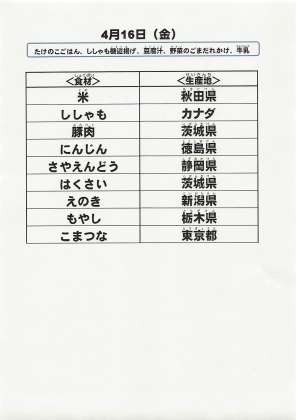 4月16日（金）
たけのこごはん、ししゃも磯辺揚げ、豆腐汁、野菜のごまだれかけ、牛乳
＜食材＞ ＜生産地＞
米 秋田県
ししゃも カナダ
豚肉 茨城県
にんじん 徳島県
さやえんどう 静岡県
はくさい 茨城県
えのき 新潟県
もやし 栃木県
こまつな 東京都